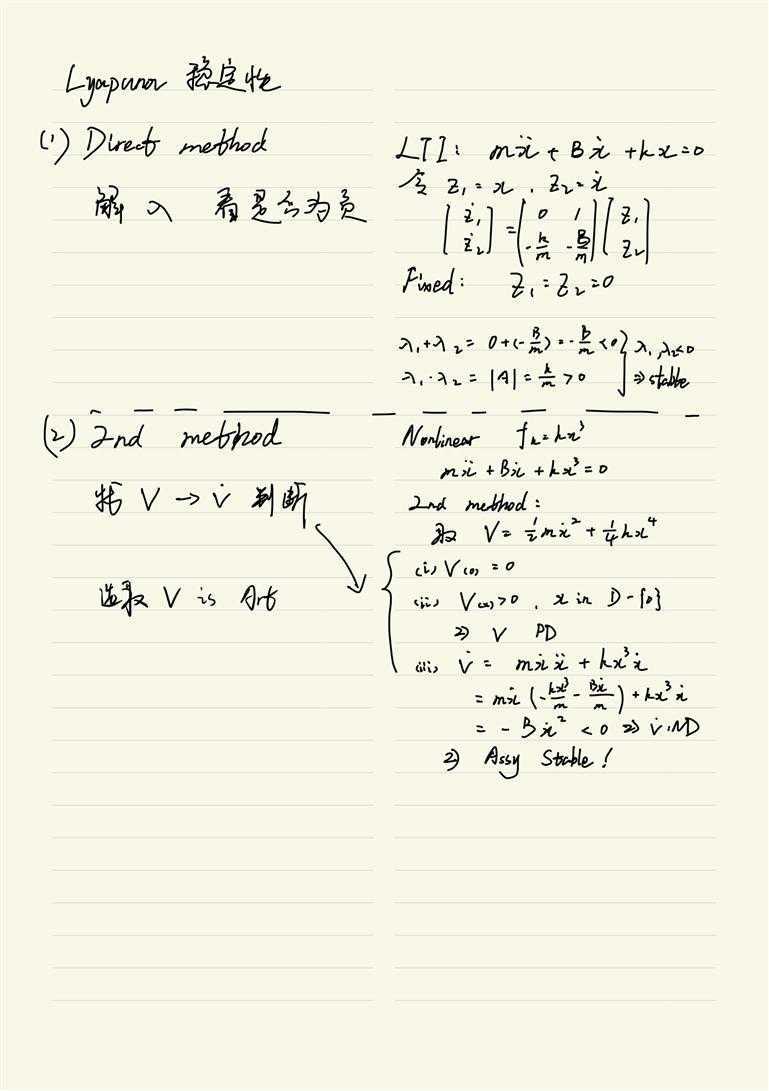 Lyapunov 稳定性
(1) Direct method
解 λ 看是否为负
LTI: mẍ + Bẋ + kx = 0
令 z₁ = x , z₂ = ẋ
[ż₁ ż₂] = [0 1 -k/m -B/m] [z₁ z₂]
Fixed: z₁ = z₂ = 0
λ₁+λ₂ = 0+(-B/m) = -B/m < 0 } λ₁,λ₂<0
λ₁·λ₂ = |A| = k/m > 0 ⇒ stable
(2) 2nd method
找 V → V̇ 判断
选取 V is Art
Nonlinear fₖ = kx³
mẍ + Bẋ + kx³ = 0
2nd method:
取 V = ½mẋ² + ¼kx⁴
(i) V(0) = 0
(ii) V(x) > 0 , x in D-{0}
⇒ V PD
(iii) V̇ = mẋẍ + kx³ẋ
= mẋ(-kx³/m - Bẋ/m) + kx³ẋ
= -Bẋ² < 0 ⇒ V̇ ND
⇒ Assy Stable!